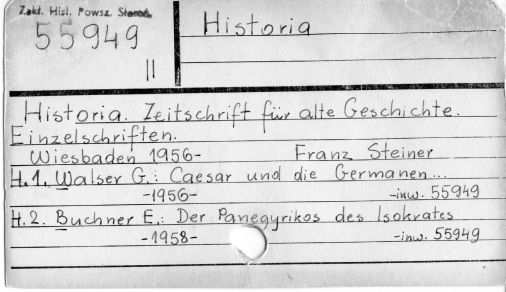 Zakł. Hist. Powsz. Staroż.
55949
II
Historia
Historia. Zeitschrift für alte Geschichte.
Einzelschriften.
Wiesbaden 1956- Franz Steiner
H.1. Walser G.: Caesar und die Germanen...
-1956- -inw. 55949
H.2. Buchner E.: Der Panegyrikos des Isokrates
-1958- -inw. 55949